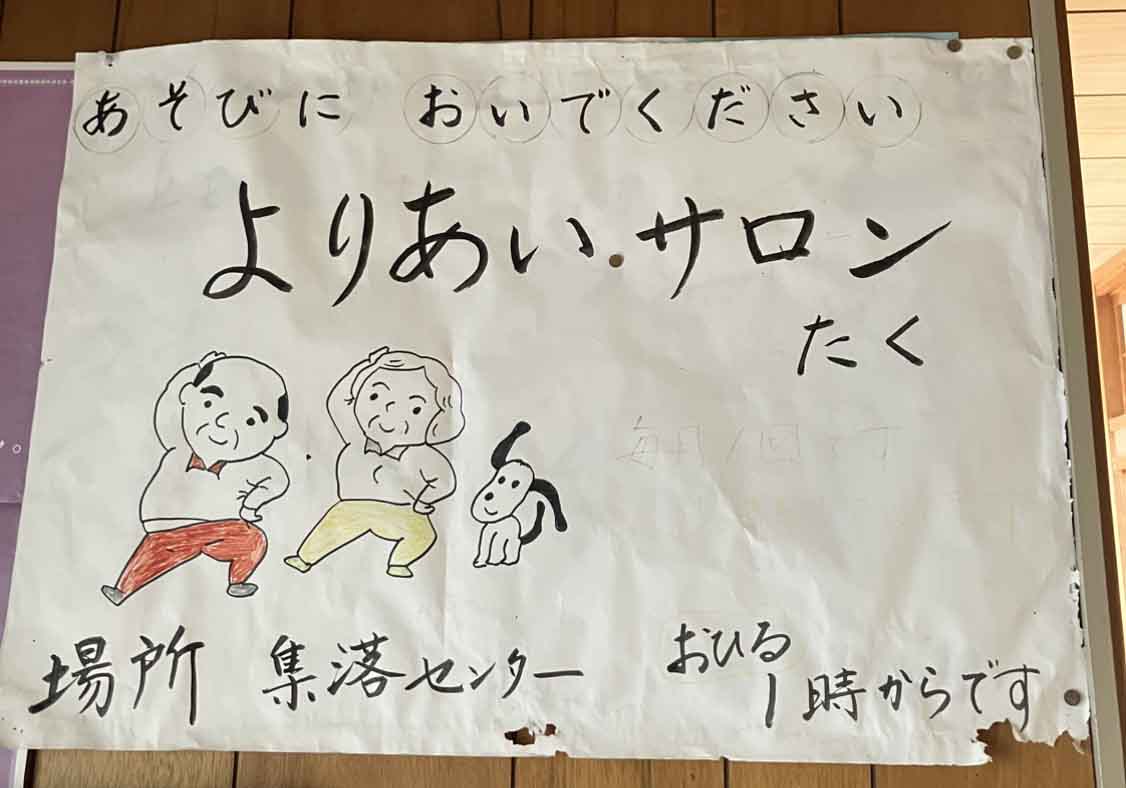 あそびに おいでください
よりあい.サロン
たく
毎月1回です
場所 集落センター
おひる
1時からです